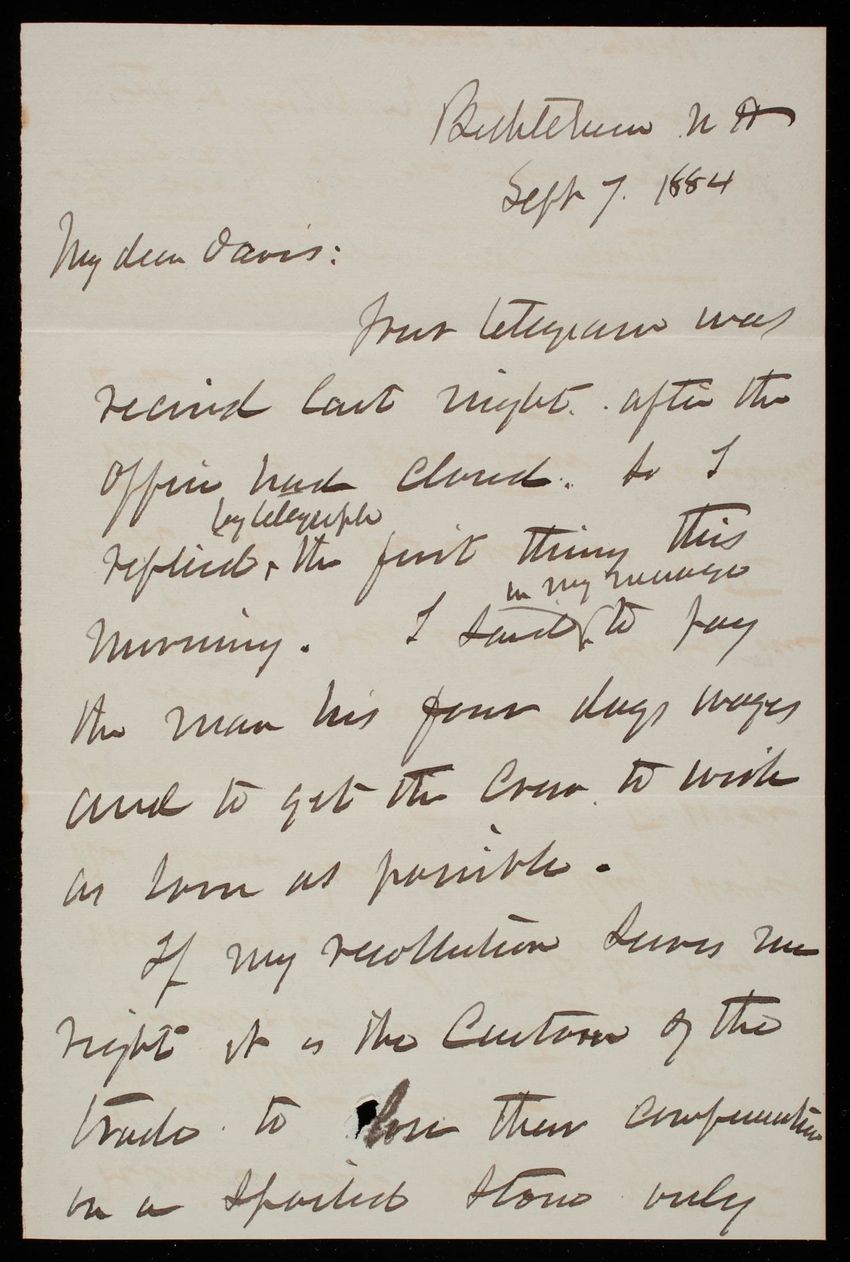 Bethlehem N H
Sept 7. 1884
My dear Davis:
Your telegram was
received last night. after the
office had closed. so I
by telegraph
replied, the first thing this
in my message
morning. I said to pay
the man his four days wages
and to get the crew to work
as soon as possible.
If my recollection serves me
right it is the custom of the
trade to lose their compensation
on a spoiled stone only